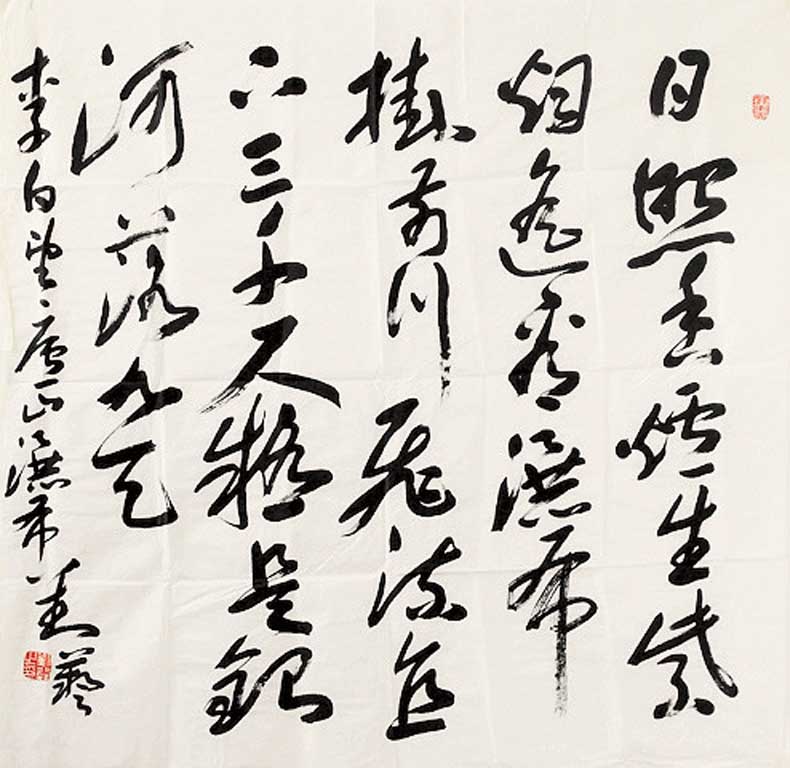 日照香炉生紫
烟遥看瀑布
掛前川飛流直
下三千尺疑是銀
河落九天
李白望庐山瀑布